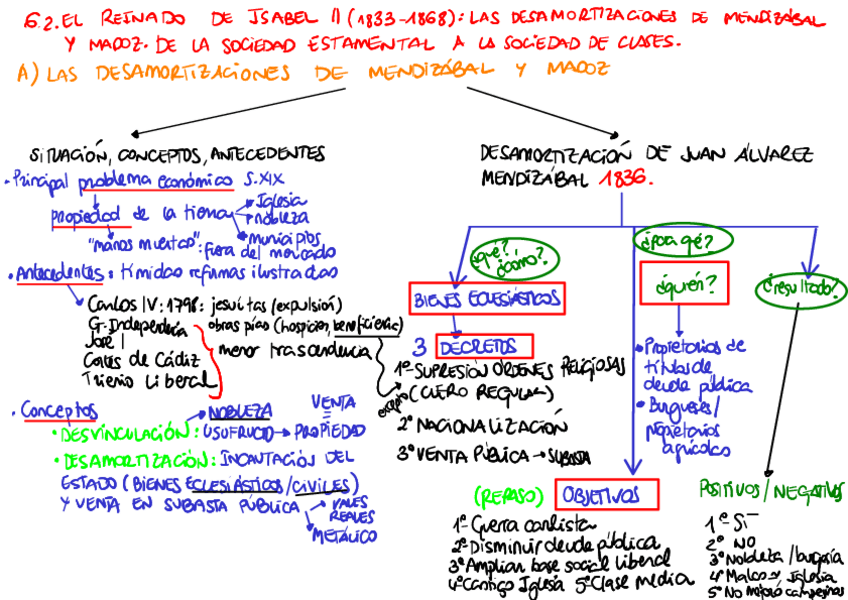 6.2. EL REINADO DE ISABEL II (1833-1868): LAS DESAMORTIZACIONES DE MENDIZÁBAL
Y MADOZ. DE LA SOCIEDAD ESTAMENTAL A LA SOCIEDAD DE CLASES.
A) LAS DESAMORTIZACIONES DE MENDIZÁBAL Y MADOZ
SITUACIÓN, CONCEPTOS, ANTECEDENTES
• Principal problema económico S.XIX
propiedad de la tierra
Iglesia
nobleza
municipios
"manos muertas": fuera del mercado
• Antecedentes: tímidas reformas ilustradas
Carlos IV: 1798: jesuitas (expulsión)
obras pías (hospicios, beneficiencia)
G. Independencia
José I
Cortes de Cádiz
Trienio Liberal
menor trascendencia
• Conceptos
NOBLEZA VENTA
• DESVINCULACIÓN: USUFRUCTO → PROPIEDAD
• DESAMORTIZACIÓN: INCAUTACIÓN DEL
ESTADO (BIENES ECLESIÁSTICOS/CIVILES)
Y VENTA EN SUBASTA PÚBLICA
VALES
REALES
METÁLICO
DESAMORTIZACIÓN DE JUAN ÁLVAREZ
MENDIZÁBAL 1836.
¿qué?
¿cómo?
BIENES ECLESIÁSTICOS
3 DECRETOS
1º- SUPRESIÓN ÓRDENES RELIGIOSAS
excepto (CLERO REGULAR)
2º NACIONALIZACIÓN
3º VENTA PÚBLICA → SUBASTA
¿por qué?
¿quién?
• Propietarios de
títulos de
deuda pública
• Burgueses/
propietarios
agrícolas
(REPASO) OBJETIVOS
1º- Guerra carlista
2º- Disminuir deuda pública
3º Ampliar base social liberal
4º Castigo Iglesia 5º Clase media
¿resultado?
POSITIVOS/NEGATIVOS
1º- SÍ
2º NO
3º Nobleza/burguesía
4º Iglesia
5º No mejoró campesinos